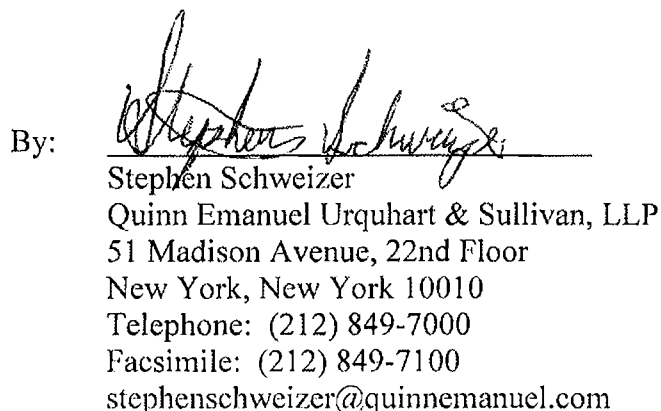 By: Stephen Schweizer
Stephen Schweizer
Quinn Emanuel Urquhart & Sullivan, LLP
51 Madison Avenue, 22nd Floor
New York, New York 10010
Telephone: (212) 849-7000
Facsimile: (212) 849-7100
stephenschweizer@quinnemanuel.com